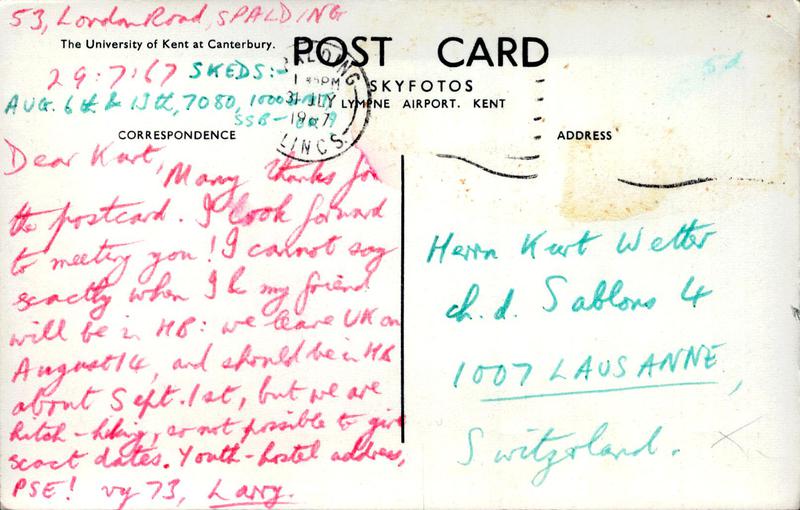 53, London Road, SPALDING
The University of Kent at Canterbury.
POST CARD
29:7:67 SKEDS:-
SKYFOTOS
AUG. 6th & 13th, 7080, 1000
LYMPNE AIRPORT. KENT
SSB-
SPALDING
PM
31 JLY
1967
LINCS.
CORRESPONDENCE
Dear Kurt,
Many thanks for
the postcard. I look forward
to meeting you! I cannot say
exactly when I & my friend
will be in HB: we leave UK on
August 14, and should be in HB
about Sept. 1st, but we are
hitch-hiking, so not possible to give
exact dates. Youth-hostel address,
PSE! vy 73, Larry.
ADDRESS
Herrn Kurt Wetter
ch. d. Sablons 4
1007 LAUSANNE,
Switzerland.